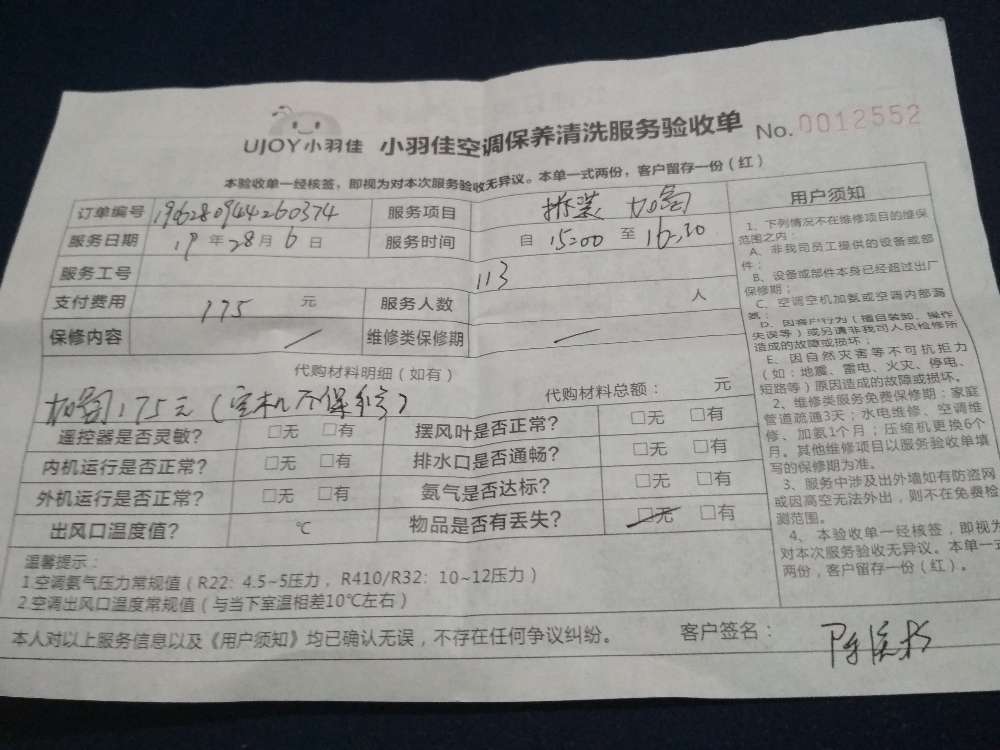 UJOY小羽佳 小羽佳空调保养清洗服务验收单 No.0012552
本验收单一经核签，即视为对本次服务验收无异议。本单一式两份，客户留存一份（红）
订单编号 1906280944260374 服务项目 拆装 加氟
服务日期 19年28月6日 服务时间 自15:00至16:30
服务工号 113
支付费用 175 元 服务人数 人
保修内容 / 维修类保修期 /
代购材料明细（如有） 代购材料总额： 元
加氟175元（空机不保修）
遥控器是否灵敏？ □无 □有 摆风叶是否正常？ □无 □有
内机运行是否正常？ □无 □有 排水口是否通畅？ □无 □有
外机运行是否正常？ □无 □有 氨气是否达标？ □无 □有
出风口温度值？ ℃ 物品是否有丢失？ □无 □有
温馨提示：
1.空调氨气压力常规值（R22：4.5~5压力，R410/R32：10~12压力）
2.空调出风口温度常规值（与当下室温相差10℃左右）
本人对以上服务信息以及《用户须知》均已确认无误，不存在任何争议纠纷。 客户签名：
用户须知
1、下列情况不在维修项目的维保
范围之内：
A、非我司员工提供的设备或部
件；
B、设备或部件本身已经超过出厂
保修期；
C、空调空机加氨或空调内部漏
氨；
D、因客户行为（擅自装卸、操作
失误等）或另请非我司人员检修所
造成的故障或损坏；
E、因自然灾害等不可抗拒力
（如：地震、雷电、火灾、停电、
短路等）原因造成的故障或损坏。
2、维修类服务免费保修期：家庭
管道疏通3天；水电维修、空调维
修、加氨1个月；压缩机更换6个
月。其他维修项目以服务验收单填
写的保修期为准。
3、服务中涉及出外墙如有防盗网
或因高空无法外出，则不在免费检
测范围。
4、本验收单一经核签，即视为
对本次服务验收无异议。本单一式
两份，客户留存一份（红）。